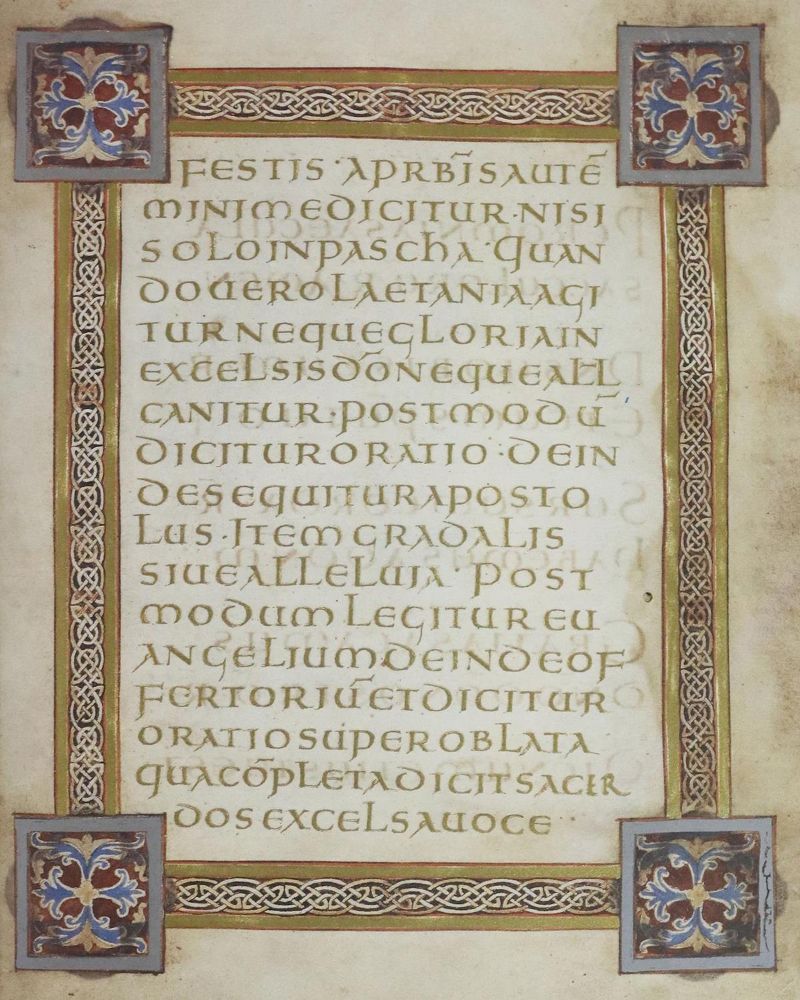 FESTIS · A PRBĪS AUTĒ
MINIME DICITUR · NISI
SOLO IN PASCHA · QUAN
DO UERO LAETANIA AGI
TUR NEQUE GLORIA IN
EXCELSIS DŌ NEQUE ALL
CANITUR · POSTMODŪ
DICITUR ORATIO · DEIN
DE SEQUITUR APOSTO
LUS · ITEM GRADALIS
SIUE ALLELUIA · POST
MODUM LEGITUR EU
ANGELIUM DEINDE OF
FERTORIŪ ET DICITUR
ORATIO SUPER OBLATA
QUA CŌPLETA DICIT SACER
DOS EXCELSA UOCE